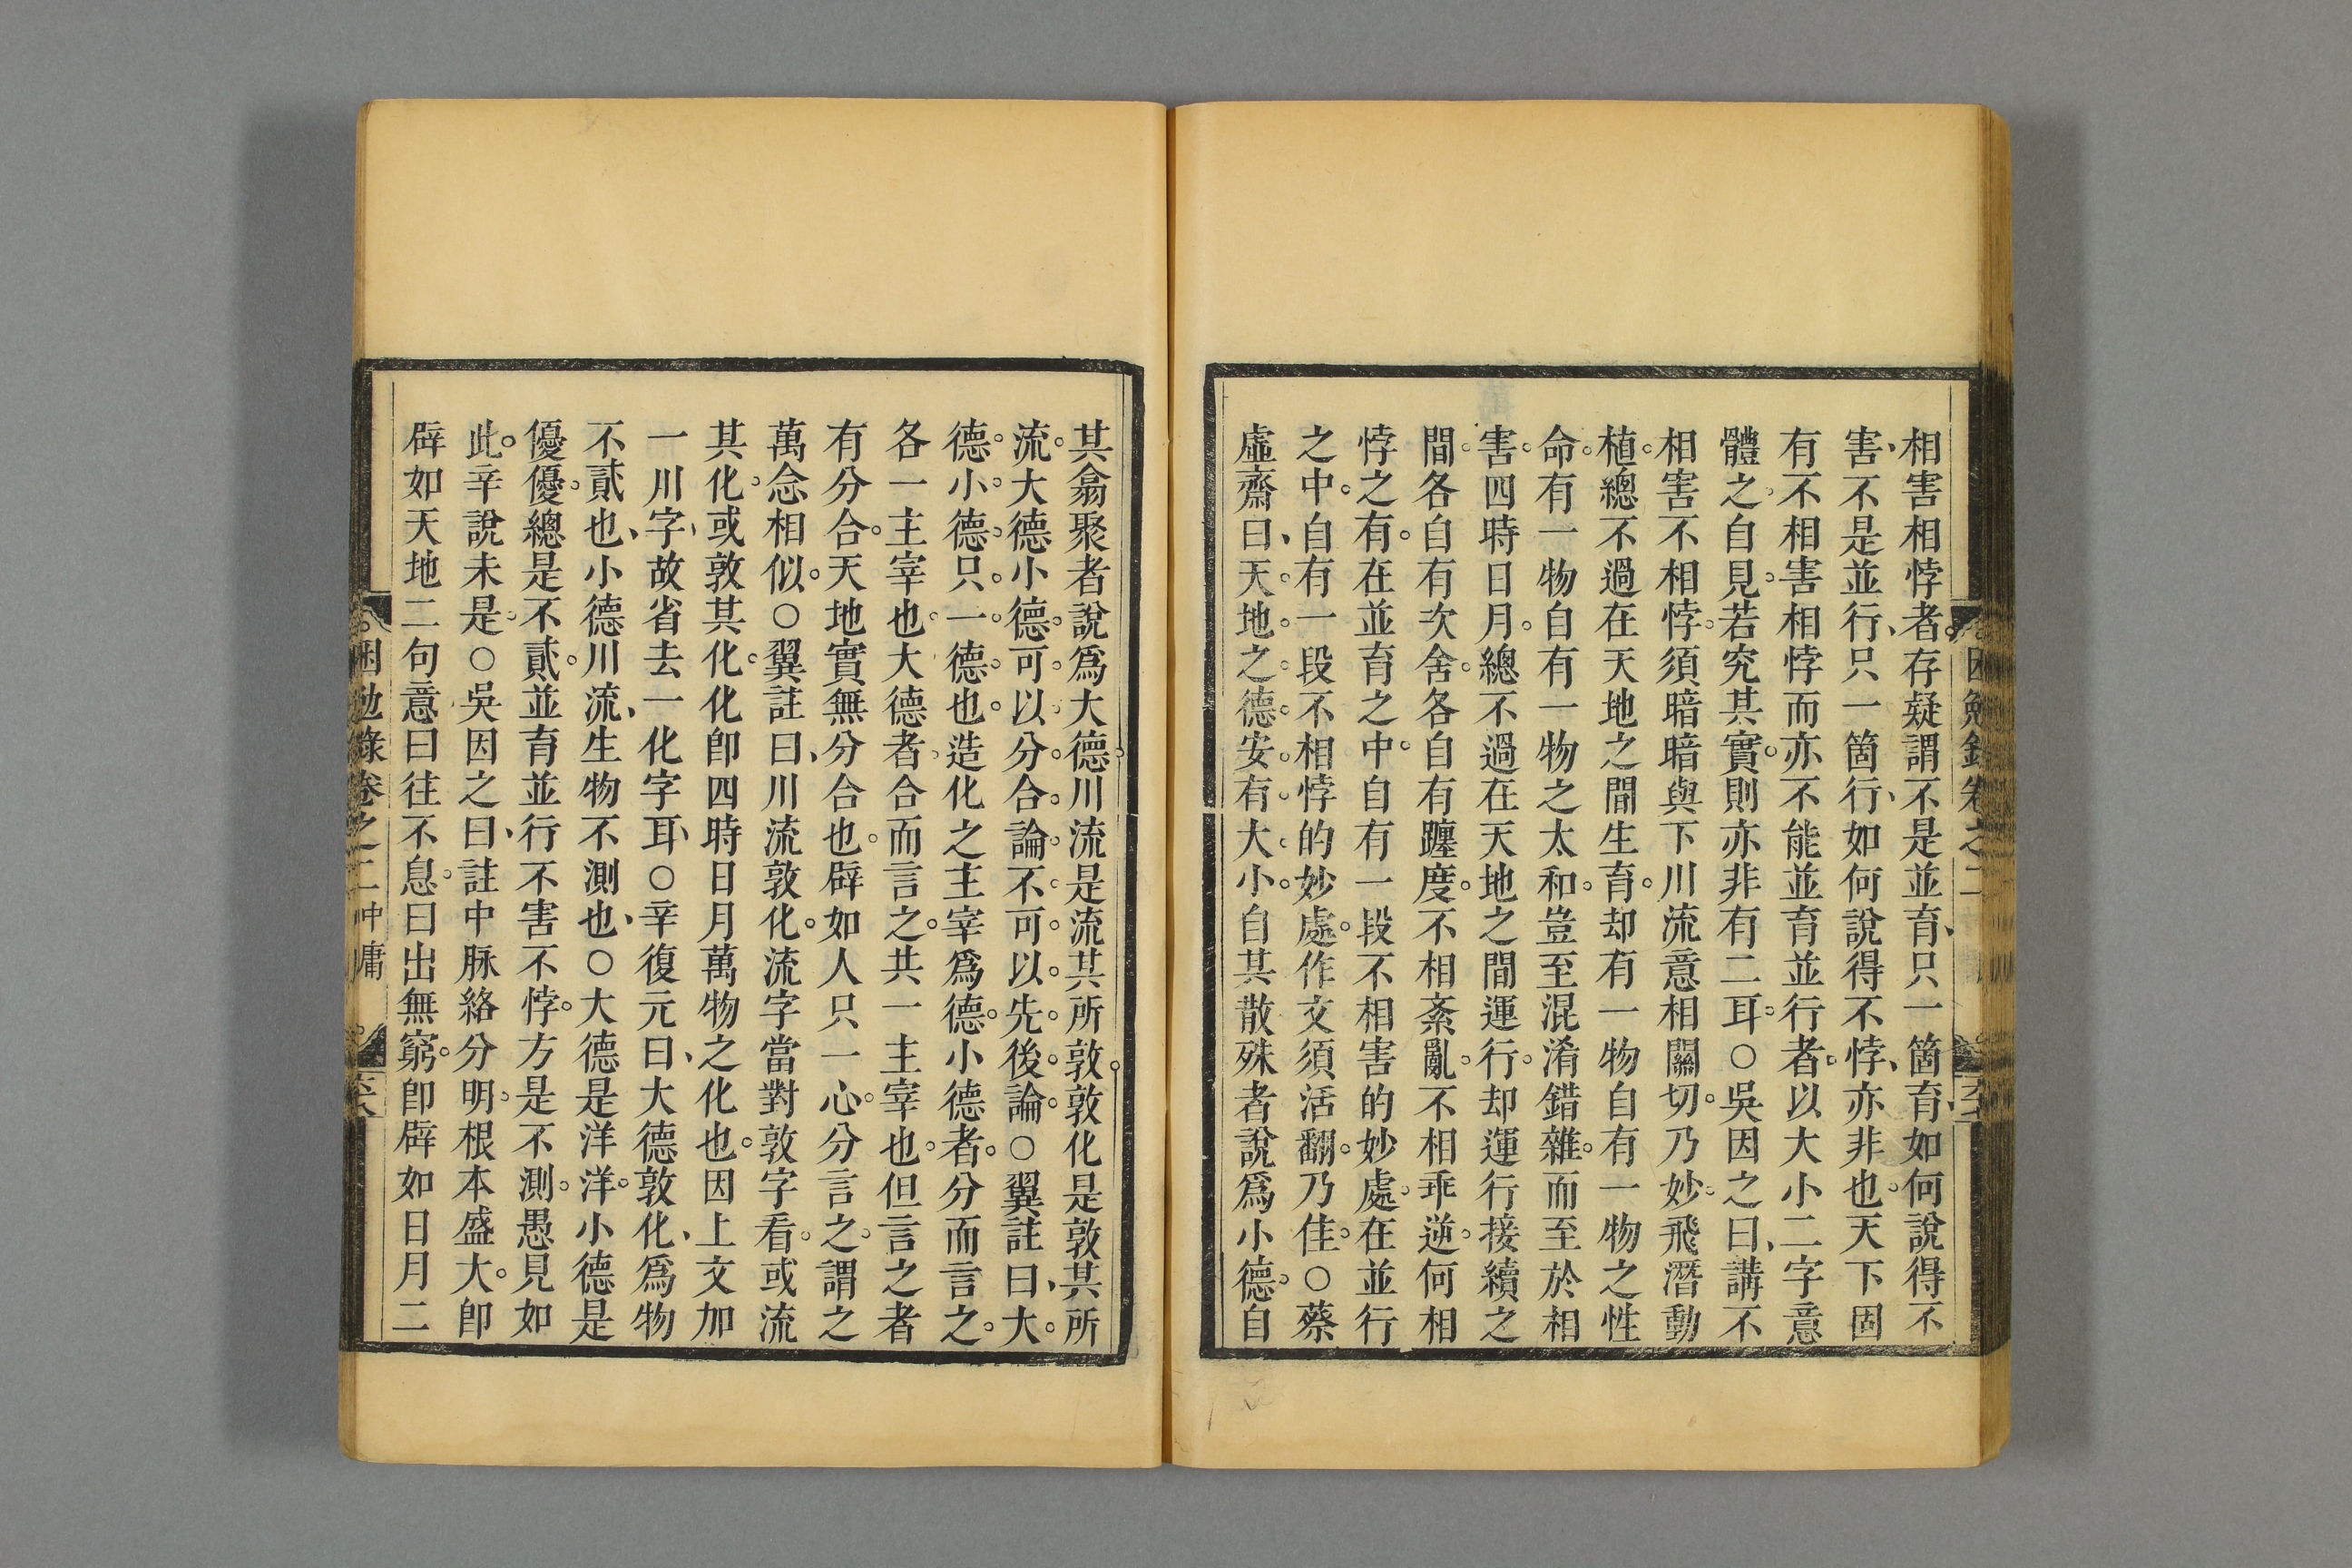 相害相悖者存疑謂不是並育只一箇育如何說得不
害不是並行只一箇行如何說得不悖亦非也天下固
有不相害相悖而亦不能並育並行者以大小二字意
體之自見若究其實則亦非有二耳○吳因之曰講不
相害不相悖須暗暗與下川流意相關切乃妙飛潛動
植總不過在天地之間生育却有一物自有一物之性
命有一物自有一物之太和豈至混淆錯雜而至於相
害四時日月總不過在天地之間運行却運行接續之
間各自有次舍各自有躔度不相紊亂不相乖逆何相
悖之有在並育之中自有一段不相害的妙處在並行
之中自有一段不相悖的妙處作文須活翻乃佳○蔡
虛齋曰天地之德安有大小自其散殊者說爲小德自
其翕聚者說爲大德川流是流其所敦敦化是敦其所
流大德小德可以分合論不可以先後論○翼註曰大
德小德只一德也造化之主宰爲德小德者分而言之
各一主宰也大德者合而言之共一主宰也但言之者
有分合天地實無分合也辟如人只一心分言之謂之
萬念相似○翼註曰川流敦化流字當對敦字看或流
其化或敦其化化卽四時日月萬物之化也因上文加
一川字故省去一化字耳○辛復元曰大德敦化爲物
不貳也小德川流生物不測也○大德是洋洋小德是
優優總是不貳並育並行不害不悖方是不測愚見如
此辛說未是○吳因之曰註中脉絡分明根本盛大卽
辟如天地二句意曰往不息曰出無窮卽辟如日月二
困勉錄卷之二 中庸